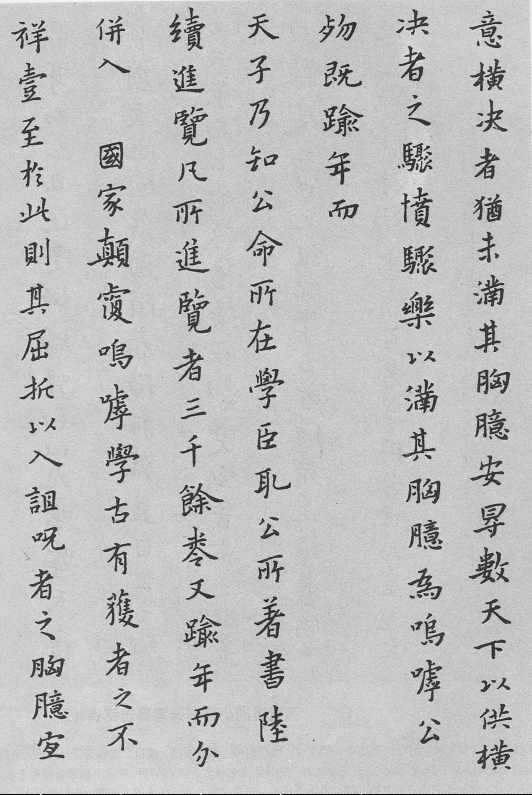 意橫决者猶未滿其胸臆安得數天下以供橫
决者之驟憤驟樂以滿其胸臆焉嗚嘑公
歾既踰年而
天子乃知公命所在學臣取公所著書陸
續進覽凡所進覽者三千餘卷又踰年而分
併入 國家顛覆嗚嘑學古有獲者之不
祥壹至於此則其屈折以入詛呪者之胸臆宜